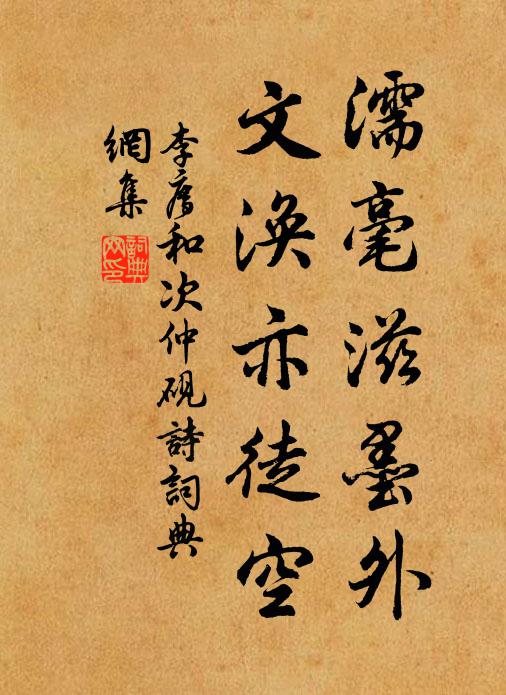 濡毫滋墨外
文渙亦徒空
李廌和次仲硯詩詞典
網集
詞典
网印